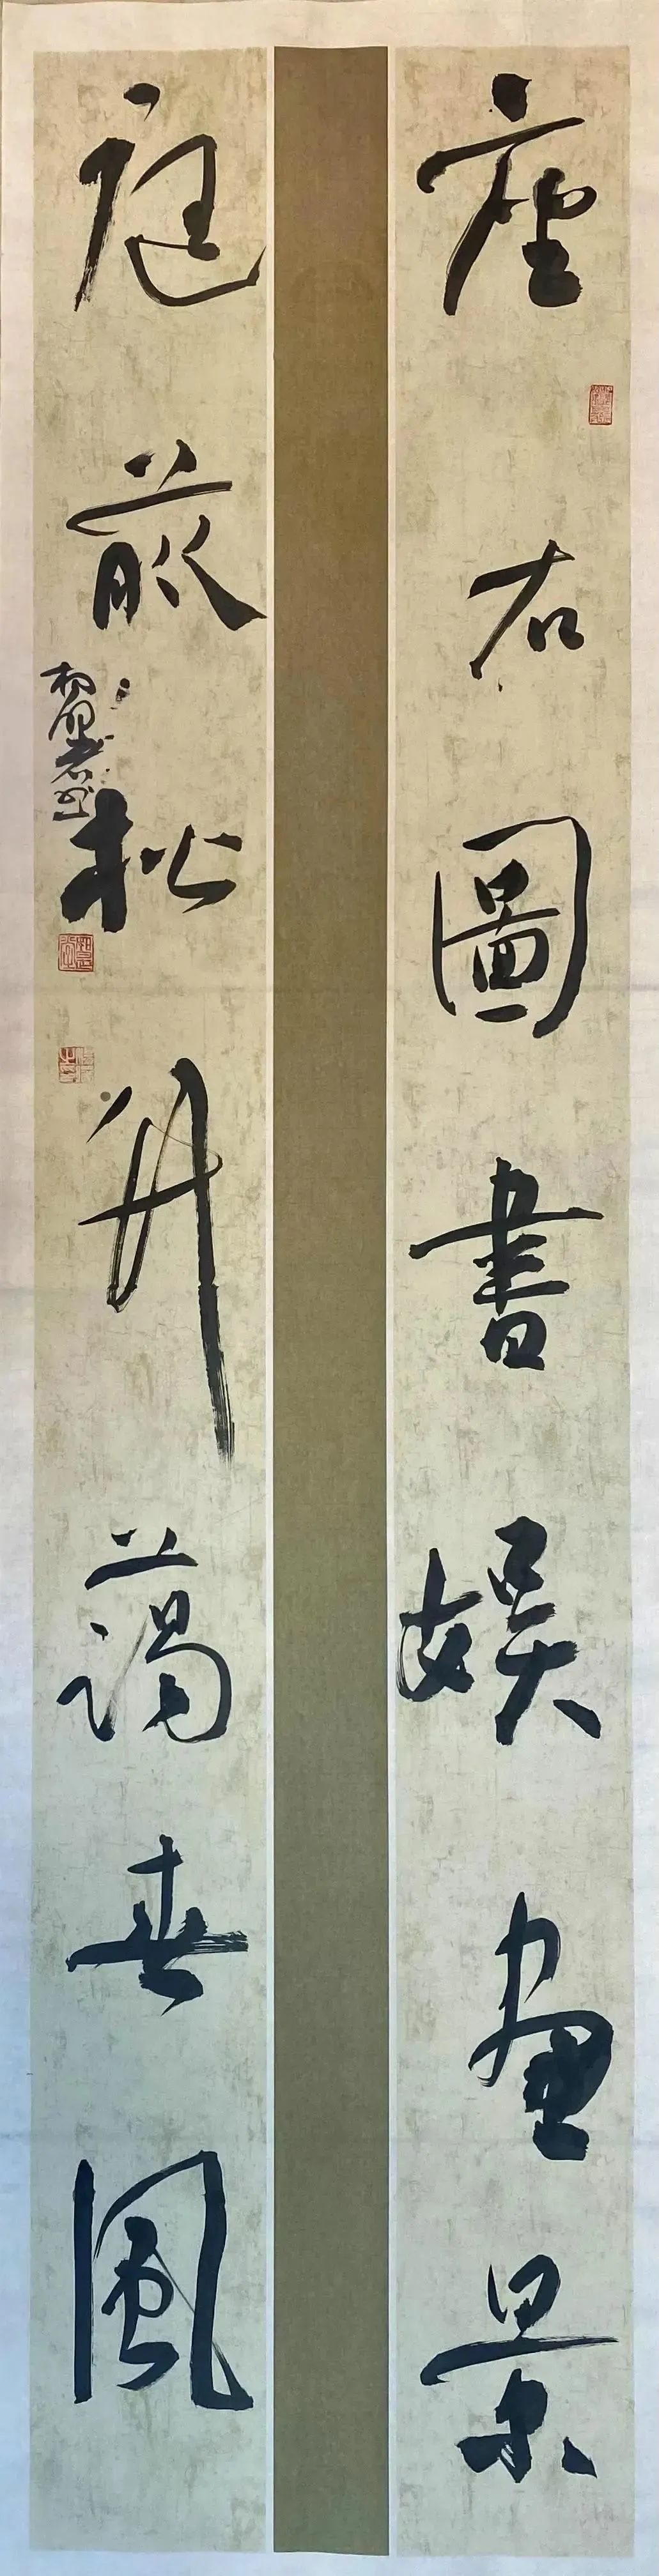 座右圖書娛畫景
庭前松竹藹春風